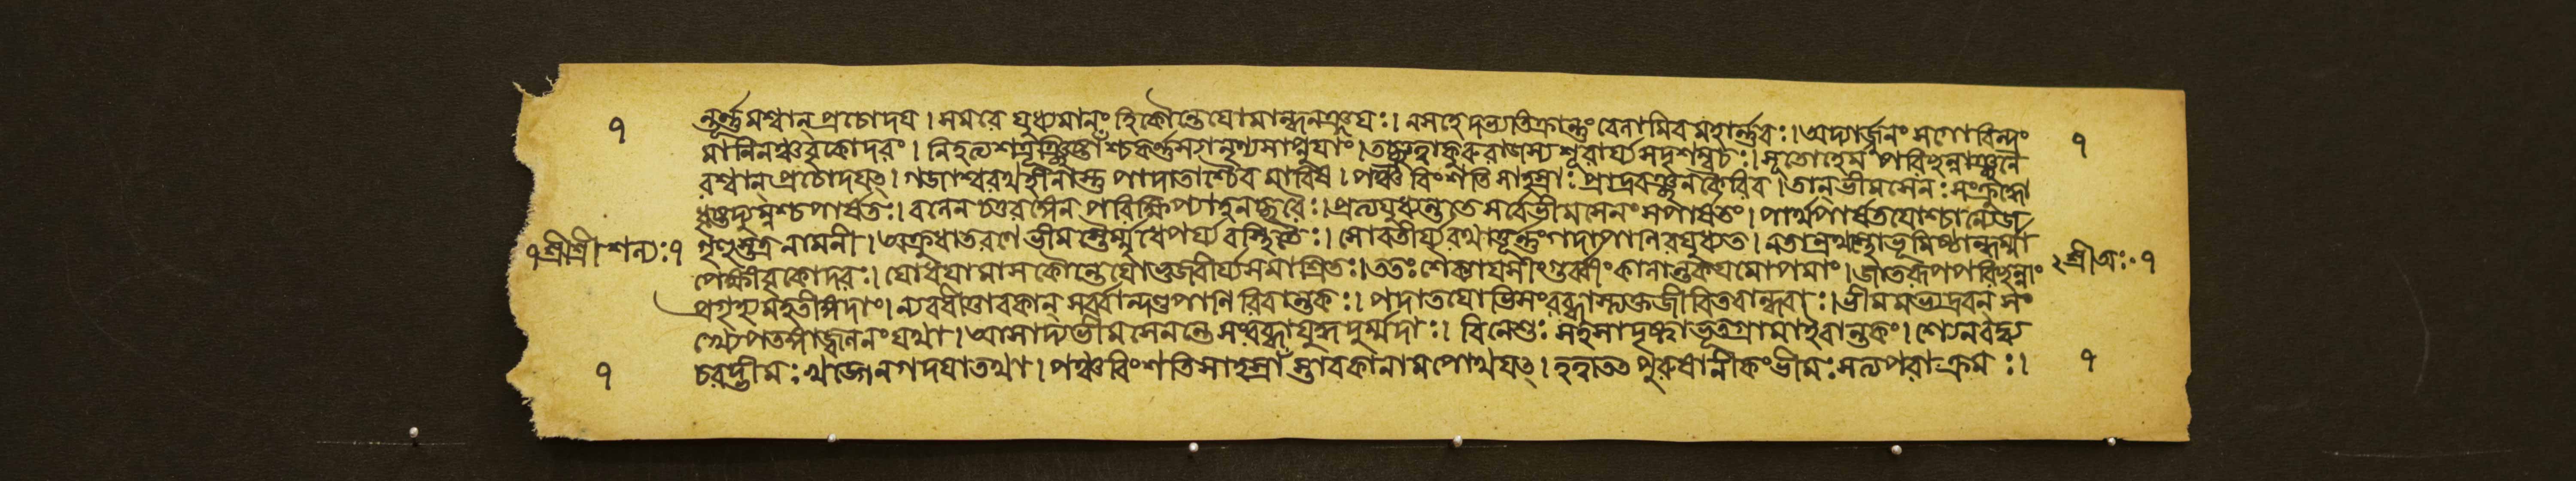 ন্তূর্ণ্ণমশ্বান্ প্রচোদয। সমরে যুধ্যমানং হি কৌন্তেযো মান্ধনঞ্জযঃ। নসহেদভ্যতিক্রান্তুং বেলামিব মহার্ন্নবঃ। অদ্যার্জ্জুনং সগোবিন্দং
মানিনঞ্চ বৃকোদরং। নিহত্য শত্রূঞ্ছিষ্টাঁশ্চ কর্ণ্ণস্যানৃণ্যমাপ্নুযাং। তচ্ছ্রুত্বা কুরুরাজস্য শূরার্য্যসদৃশম্বচঃ। সূতো হেমপরিচ্ছন্নাঞ্ছনৈ
রশ্বান্ প্রচোদযৎ। গজাশ্বরথহীনাস্তু পাদাতাশ্চৈব মারিষ। পঞ্চবিংশতি সাহস্রাঃ প্রাদ্রবঞ্ছনকৈরিব। তান্ ভীমসেনঃ সংক্রুদ্ধো
ধৃষ্টদ্যুম্নশ্চ পার্ষতঃ। বলেন চতুরঙ্গেন পরিক্ষিপ্যাহনচ্ছরৈঃ। প্রত্যযুধ্যন্ত তে সর্বে ভীমসেনং সপার্ষতং। পার্থপার্ষতযোশ্চান্যে জ
গৃহুস্তত্র নামনী। অক্রুধ্যত রণে ভীমস্তৈর্ম্মৃধে পর্য্যবস্থিতৈঃ। সোবতীর্য্য রথাত্তূর্ন্নং গদাপানিরযুধ্যত। ন তান্ রথস্থো ভূমিষ্ঠান্ ধর্ম্মা
পেক্ষী বৃকোদরঃ। যোধযামাস কৌন্তেযো ভুজবীর্য্যসমাশ্রিতঃ। ততঃ শৈক্যাযসীং গুর্ব্বীং কালান্তকযমোপমাং। জাতরূপপরিচ্ছন্নাং
প্রগৃহ্য মহতীঙ্গদাং। ন্যবধীত্তাবকান্ সর্বান্দণ্ডপানিরিবান্তকঃ। পদাতযোভিসংরব্ধাস্ত্যক্তজীবিতবান্ধবাঃ। ভীমমভ্যদ্রবন্ সং
খ্যে পতঙ্গা জ্বলনং যথা। আসাদ্য ভীমসেনন্তে সংরব্ধা যুদ্ধদুর্ম্মদাঃ। বিনেশুঃ সহসা দৃষ্ট্বা ভূতগ্রামা ইবান্তকং। শ্যেনবদ্ব্য
চরদ্ভীমঃ খড্গেন গদযা তথা। পঞ্চবিংশতি সাহস্রাঁস্তাবকানামপোথযৎ। হত্বা তৎ পুরুষানীকং ভীমঃ সত্যপরাক্রমঃ।